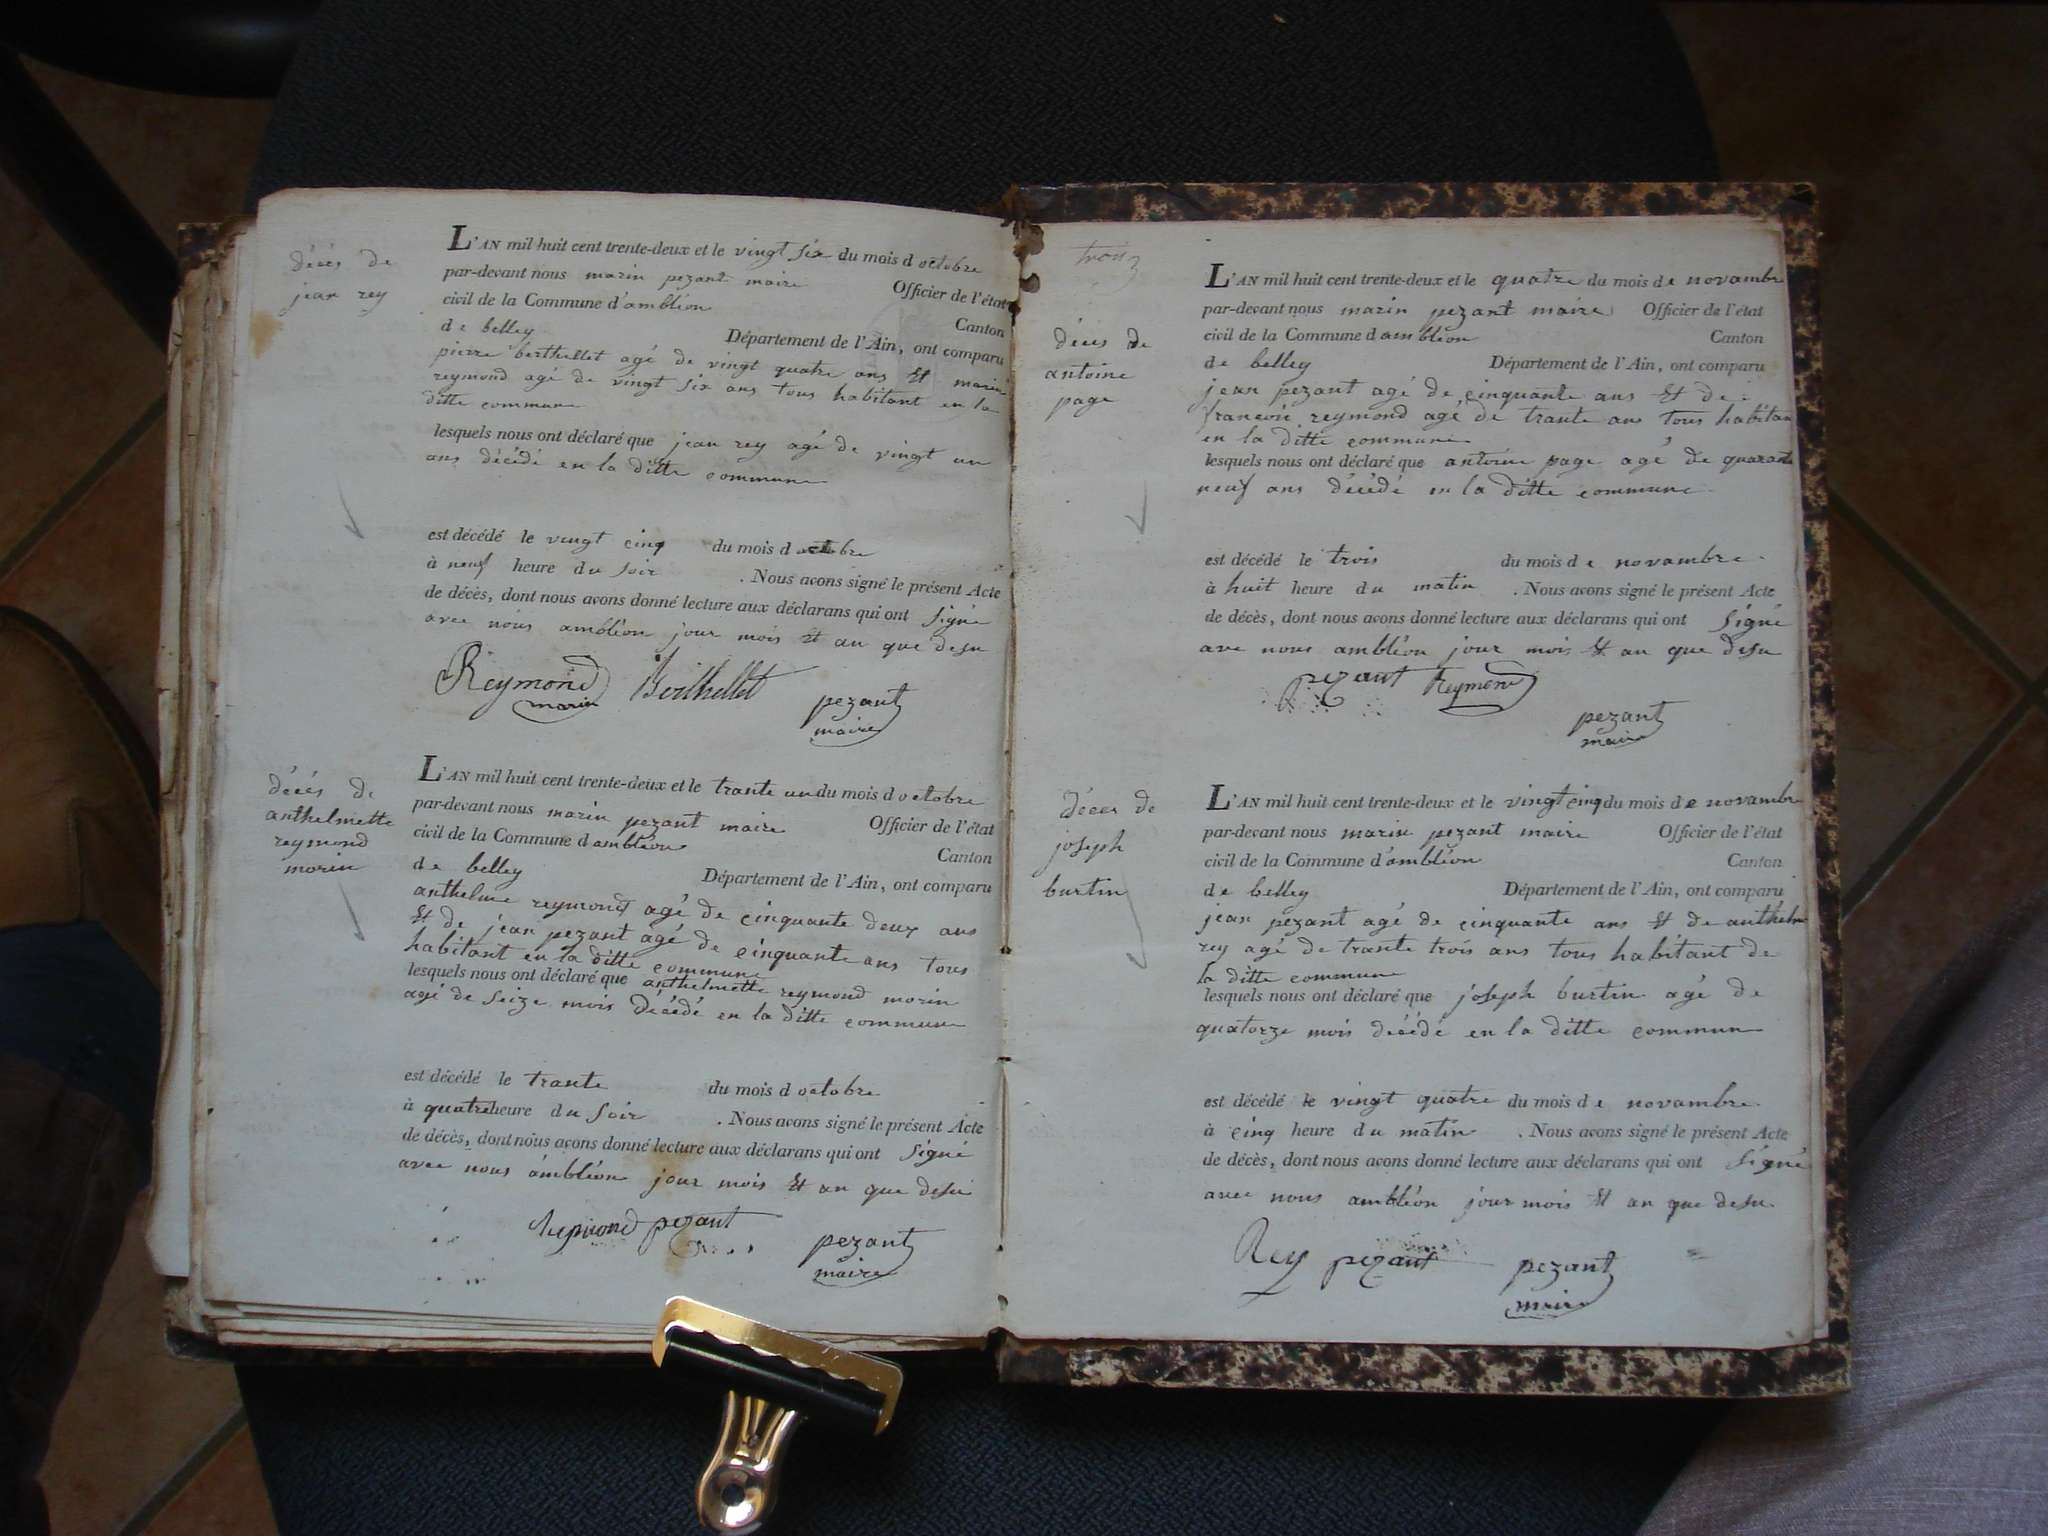 décès de
jean rey
L'AN mil huit cent trente-deux et le vingt six du mois d octobre
par-devant nous marin pezant maire Officier de l'état
civil de la Commune d'ambléon Canton
de belley Département de l'Ain, ont comparu
pierre berthellet agé de vingt quatre ans Et marin
reymond agé de vingt six ans tous habitant en la
ditte commune
lesquels nous ont déclaré que jean rey agé de vingt un
ans décédé en la ditte commune
est décédé le vingt cinq du mois d octobre
à neuf heure du soir . Nous avons signé le présent Acte
de décès, dont nous avons donné lecture aux déclarans qui ont signé
avec nous ambléon jour mois Et an que desu
Reymond Berthellet
marin pezant
maire
décés de
anthelmette
reymond
morin
L'AN mil huit cent trente-deux et le trante un du mois d octobre
par-devant nous marin pezant maire Officier de l'état
civil de la Commune d ambléon Canton
de belley Département de l'Ain, ont comparu
anthelme reymond agé de cinquante deux ans
Et de jean pezant agé de cinquante ans tous
habitant en la ditte commune
lesquels nous ont déclaré que anthelmette reymond morin
agé de seize mois décédé en la ditte commune
est décédé le trante du mois d octobre
à quatre heure du soir . Nous avons signé le présent Acte
de décès, dont nous avons donné lecture aux déclarans qui ont signé
avec nous ambléon jour mois Et an que desu
Reymond pezant pezant
maire
décès de
antoine
page
L'AN mil huit cent trente-deux et le quatre du mois de novembre
par-devant nous marin pezant maire Officier de l'état
civil de la Commune d ambléon Canton
de belley Département de l'Ain, ont comparu
jean pezant agé de cinquante ans Et de
francois reymond agé de trante ans tous habitan
en la ditte commune
lesquels nous ont déclaré que antoine page agé de quarante
neuf ans décédé en la ditte commune
est décédé le trois du mois de novambre
à huit heure du matin . Nous avons signé le présent Acte
de décès, dont nous avons donné lecture aux déclarans qui ont signé
avec nous ambléon jour mois Et an que desu
pezant Reymond
pezant
maire
décès de
joseph
burtin
L'AN mil huit cent trente-deux et le vingt cinq du mois de novambre
par-devant nous marin pezant maire Officier de l'état
civil de la Commune d'ambléon Canton
de belley Département de l'Ain, ont comparu
jean pezant agé de cinquante ans Et de anthelme
rey agé de trante trois ans tous habitant de
la ditte commune
lesquels nous ont déclaré que joseph burtin agé de
quatorze mois décédé en la ditte commune
est décédé le vingt quatre du mois de novambre
à cinq heure du matin . Nous avons signé le présent Acte
de décès, dont nous avons donné lecture aux déclarans qui ont signé
avec nous ambléon jour mois Et an que desu
Rey pezant pezant
maire